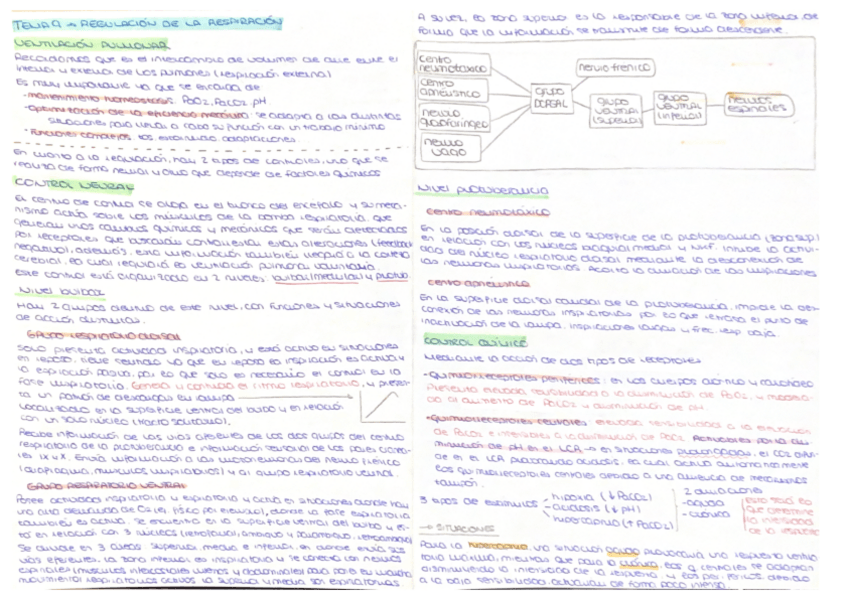 TEMA 9 → REGULACIÓN DE LA RESPIRACIÓN
VENTILACIÓN PULMONAR
Recordamos que es el intercambio de volumen de aire entre el
interior y exterior de los pulmones (respiración externa)
Es muy importante ya que se encarga de
- mantenimiento homeostasis. PaO2, PaCO2, pH
- Optimización de la eficiencia mecánica se adapta a las distintas
situaciones para llevar a cabo su función con un trabajo mínimo
- Funciones complejas. tos estornudo, adaptaciones
En cuanto a la regulación, hay 2 tipos de controles, uno que se
realiza de forma neural y otro que depende de factores químicos
CONTROL NEURAL
El centro de control se aloja en el tronco del encéfalo y su meca-
nismo actúa sobre los músculos de la bomba respiratoria, que
generan unos cambios químicos y mecánicos que serán detectados
por receptores que buscarán contrarrestar estas alteraciones (feedback
negativo), además, esta información también llegará a la corteza
cerebral, la cual regulará la ventilación pulmonar voluntaria
Este control está organizado en 2 niveles, bulbar/medular y protub.
NIVEL BULBAR
Hay 2 grupos dentro de este nivel, con funciones y situaciones
de acción distintas.
GRUPO RESPIRATORIO DORSAL
Solo presenta actividad inspiratoria, y está activo en situaciones
en reposo, tiene sentido ya que en reposo la inspiración es activa y
la espiración pasiva, por lo que solo es necesario el control en la
fase inspiratoria. Genera y controla el ritmo respiratorio, y presen-
ta un patrón de descarga en rampa
Localizado en la superficie ventral del bulbo y en relación
con un solo núcleo (tracto solitario).
Recibe información de las vías aferentes de los dos grupos del centro
respiratorio de la protuberancia e información sensorial de los pares cranea-
les IX y X. Envía información a las motoneuronas del nervio frénico
(diafragma, músculos inspiratorios) y al grupo respiratorio ventral.
GRUPO RESPIRATORIO VENTRAL
Posee actividad inspiratoria y espiratoria y actúa en situaciones donde hay
una alta demanda de O2 (ej. físico por ejemplo), donde la fase espiratoria
también es activa. Se encuentra en la superficie ventral del bulbo y es-
tá en relación con 3 núcleos
Se divide en 3 áreas superior, media e inferior, en donde envía sus
vías eferentes, la zona inferior es inspiratoria y se conecta con nervios
espinales (músculos intercostales internos y abdominales para
movimientos respiratorios activos la superior y media son espiratorias
A su vez, la zona superior es la responsable de la zona inferior de
forma que la información se transmite de forma descendente.
centro
neumotáxico
centro
apnéustico
nervio
glosofaríngeo
nervio
vago
GRUPO
DORSAL
nervio frénico
GRUPO
VENTRAL
(superior)
GRUPO
VENTRAL
(inferior)
nervios
espinales
NIVEL PROTUBERANCIA
CENTRO NEUMOTÁXICO
En la posición dorsal de la superficie de la protuberancia (zona sup)
en relación con los núcleos
dad del núcleo respiratorio dorsal mediante la desconexión de
las neuronas inspiratorias. Acorta la duración de las inspiraciones
CENTRO APNÉUSTICO
En la superficie dorsal caudal de la protuberancia, impide la des-
conexión de las neuronas inspiratorias por lo que retrasa el punto de
inactivación de la rampa, inspiraciones largas y frec. resp baja.
CONTROL QUÍMICO
Mediante la acción de dos tipos de receptores
- Quimiorreceptores periféricos: en los cuerpos aórtico y carotídeo
Presenta elevada sensibilidad a la disminución de PaO2, y modera-
da al aumento de PaCO2 y disminución de pH.
- Quimiorreceptores centrales elevada sensibilidad a la elevación
de PaCO2 e insensibles a la disminución de PaO2.
minución de pH en el LCR → en situaciones prolongadas, el CO2 difun-
de en el LCR provocando acidosis, la cual activa automáticamente
los quimiorreceptores centrales debido a una ausencia de mecanismos
tampón.
3 tipos de estímulos
- hipoxia (↓PaO2)
- acidosis (↓pH)
- hipercapnia (↑PaCO2)
2 duraciones
- aguda
- crónica
esto será lo
que determine
la intensidad
de la respuesta
→ SITUACIONES
Para la hipercapnia, una situación aguda provocará una respuesta venti-
toria normal, mientras que para la crónica, los q centrales se adaptan
disminuyendo la intensidad de la respuesta y los periféricos debido
a la baja sensibilidad, actuarán de forma poco intensa.